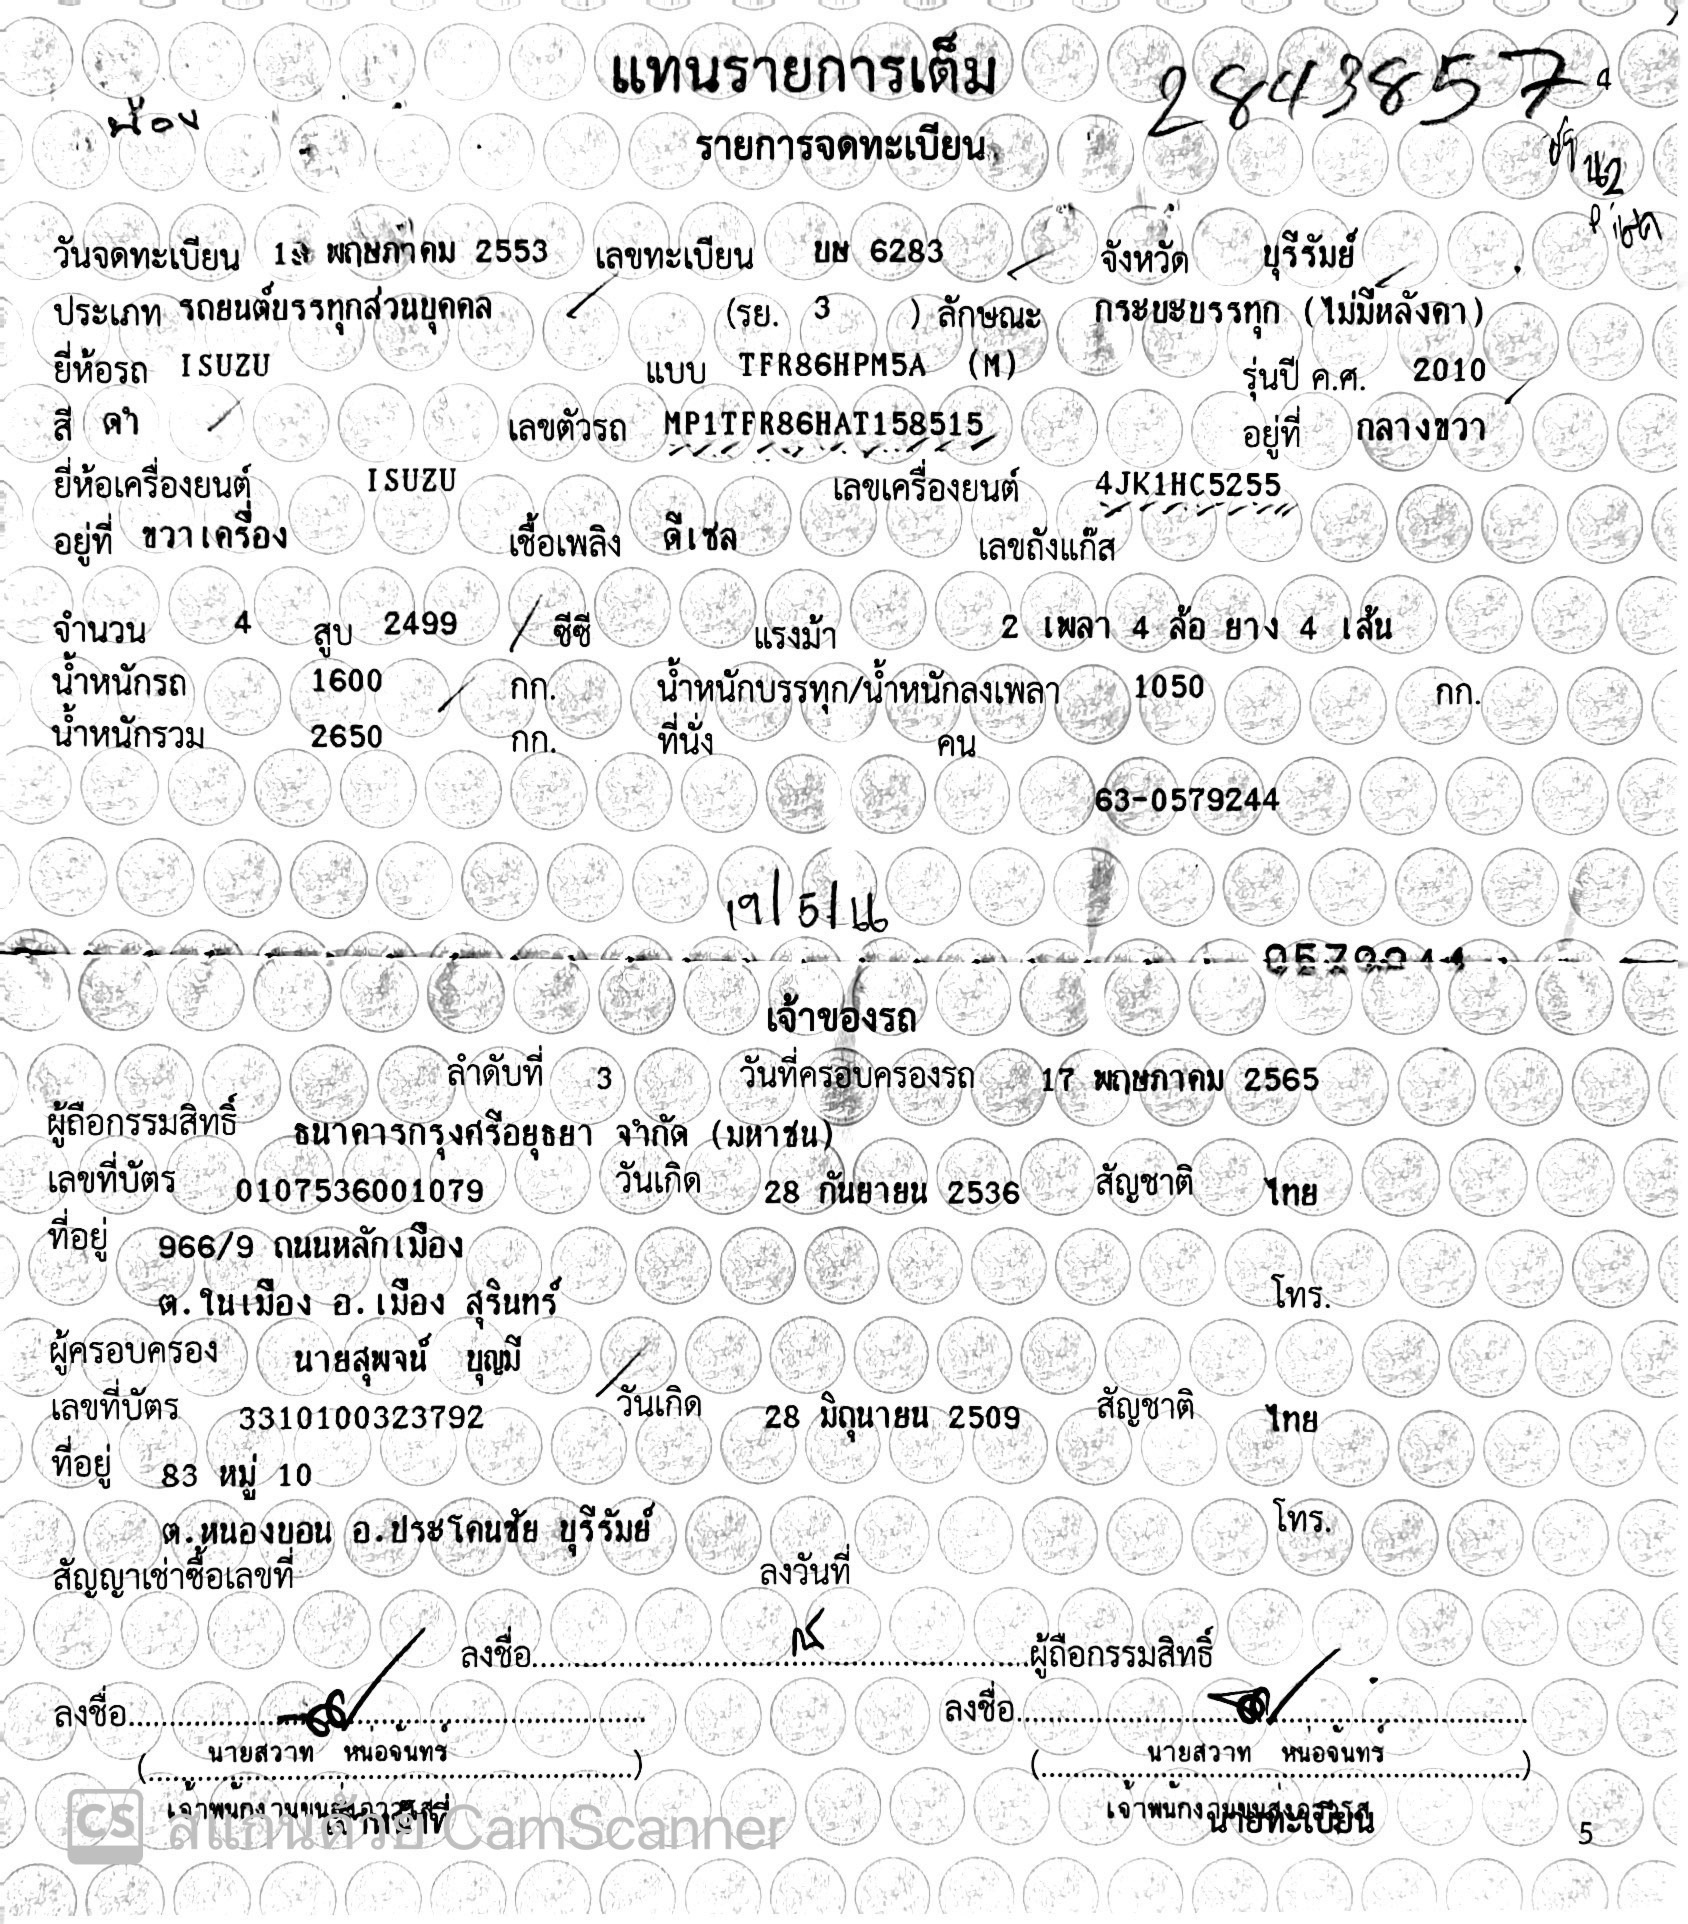 แทนรายการเต็ม
2843857 4
น้อง
รายการจดทะเบียน
วันจดทะเบียน พฤษภาคม 2553 เลขทะเบียน บษ 6283 จังหวัด บุรีรัมย์
ประเภท รถยนต์บรรทุกส่วนบุคคล (รย. 3 ) ลักษณะ กระบะบรรทุก (ไม่มีหลังคา)
ยี่ห้อรถ ISUZU แบบ TFR86HPM5A (M) รุ่นปี ค.ศ. 2010
สี ดำ เลขตัวรถ MP1TFR86HAT158515 อยู่ที่ กลางขวา
ยี่ห้อเครื่องยนต์ ISUZU เลขเครื่องยนต์ 4JK1HC5255
อยู่ที่ ขวาเครื่อง เชื้อเพลิง ดีเซล เลขถังแก๊ส
จำนวน 4 สูบ 2499 ซีซี แรงม้า 2 เพลา 4 ล้อ ยาง 4 เส้น
น้ำหนักรถ 1600 กก. น้ำหนักบรรทุก/น้ำหนักลงเพลา 1050 กก.
น้ำหนักรวม 2650 กก. ที่นั่ง คน
63-0579244
0579244
เจ้าของรถ
ลำดับที่ 3 วันที่ครอบครองรถ 17 พฤษภาคม 2565
ผู้ถือกรรมสิทธิ์ ธนาคารกรุงศรีอยุธยา จำกัด (มหาชน)
เลขที่บัตร 0107536001079 วันเกิด 28 กันยายน 2536 สัญชาติ ไทย
ที่อยู่ 966/9 ถนนหลักเมือง
ต.ในเมือง อ.เมือง สุรินทร์ โทร.
ผู้ครอบครอง นายสุพจน์ บุญมี
เลขที่บัตร 3310100323792 วันเกิด 28 มิถุนายน 2509 สัญชาติ ไทย
ที่อยู่ 83 หมู่ 10
ต.หนองบอน อ.ประโคนชัย บุรีรัมย์ โทร.
สัญญาเช่าซื้อเลขที่ ลงวันที่
ลงชื่อ ผู้ถือกรรมสิทธิ์
ลงชื่อ ลงชื่อ
(นายสวาท หนอจันทร์) (นายสวาท หนอจันทร์)
เจ้าพนักงานขนส่งอาวุโส เจ้าพนักงานขนส่งอาวุโส
เจ้าหน้าที่ นายทะเบียน
CS สแกนด้วย CamScanner
5